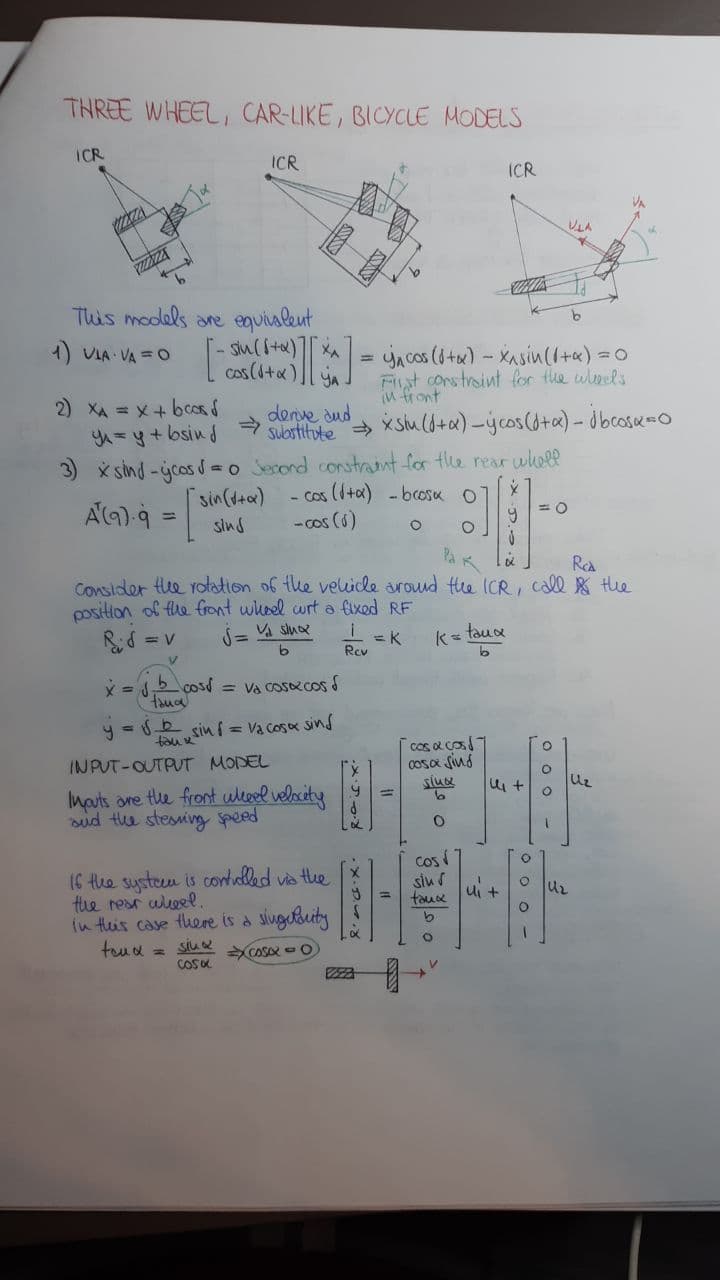 THREE WHEEL, CAR-LIKE, BICYCLE MODELS
ICR
ICR
ICR
α
b
α
δ
b
V⊥A
VA
α
δ
b
This models are equivalent
1) V⊥A · VA = 0 [-sin(δ+α) cos(δ+α)] [ẋA ẏA] = ẏA cos(δ+α) - ẋA sin(δ+α) = 0
First constraint for the wheels
in front
2) xA = x + b cos δ
yA = y + b sin δ ⇒ derive and substitute ⇒ ẋ sin(δ+α) - ẏ cos(δ+α) - δ̇ b cos α = 0
3) ẋ sin δ - ẏ cos δ = 0 Second constraint for the rear wheel
Aᵀ(q)·q̇ = [sin(δ+α) -cos(δ+α) -b cos α 0
sin δ -cos(δ) 0 0] [ẋ ẏ δ̇ α̇] = 0
Consider the rotation of the vehicle around the ICR, call the
position of the front wheel wrt a fixed RF
Rcv·δ̇ = v δ̇ = Vd sin α / b 1/Rcv = K K = tan α / b
v
ẋ = δ̇ b/tan α cos δ = Vd cos α cos δ
ẏ = δ̇ b/tan α sin δ = Vd cos α sin δ
INPUT-OUTPUT MODEL
Inputs are the front wheel velocity
and the steering speed
[ẋ ẏ δ̇ α̇] = [cos α cos δ cos α sin δ sin α/b 0] u1 + [0 0 0 1] u2
If the system is controlled via the
the rear wheel.
in this case there is a singularity
[ẋ ẏ δ̇ α̇] = [cos δ sin δ tan α/b 0] u1' + [0 0 0 1] u2
tan α = sin α / cos α ⇒ cos α = 0
v